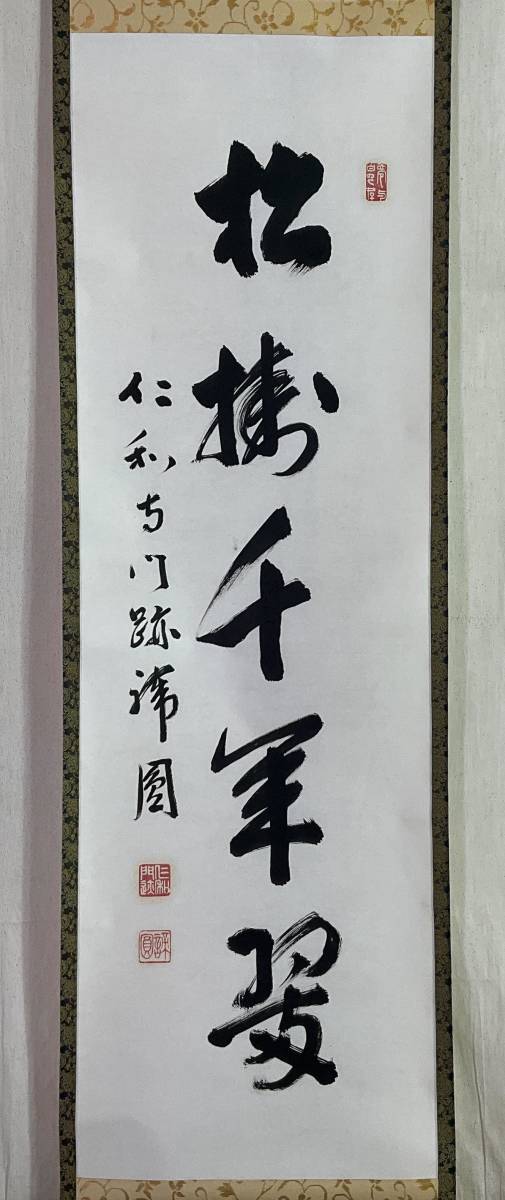 松樹千年翠
仁和寺門跡諦圓
仁和門跡
諦圓